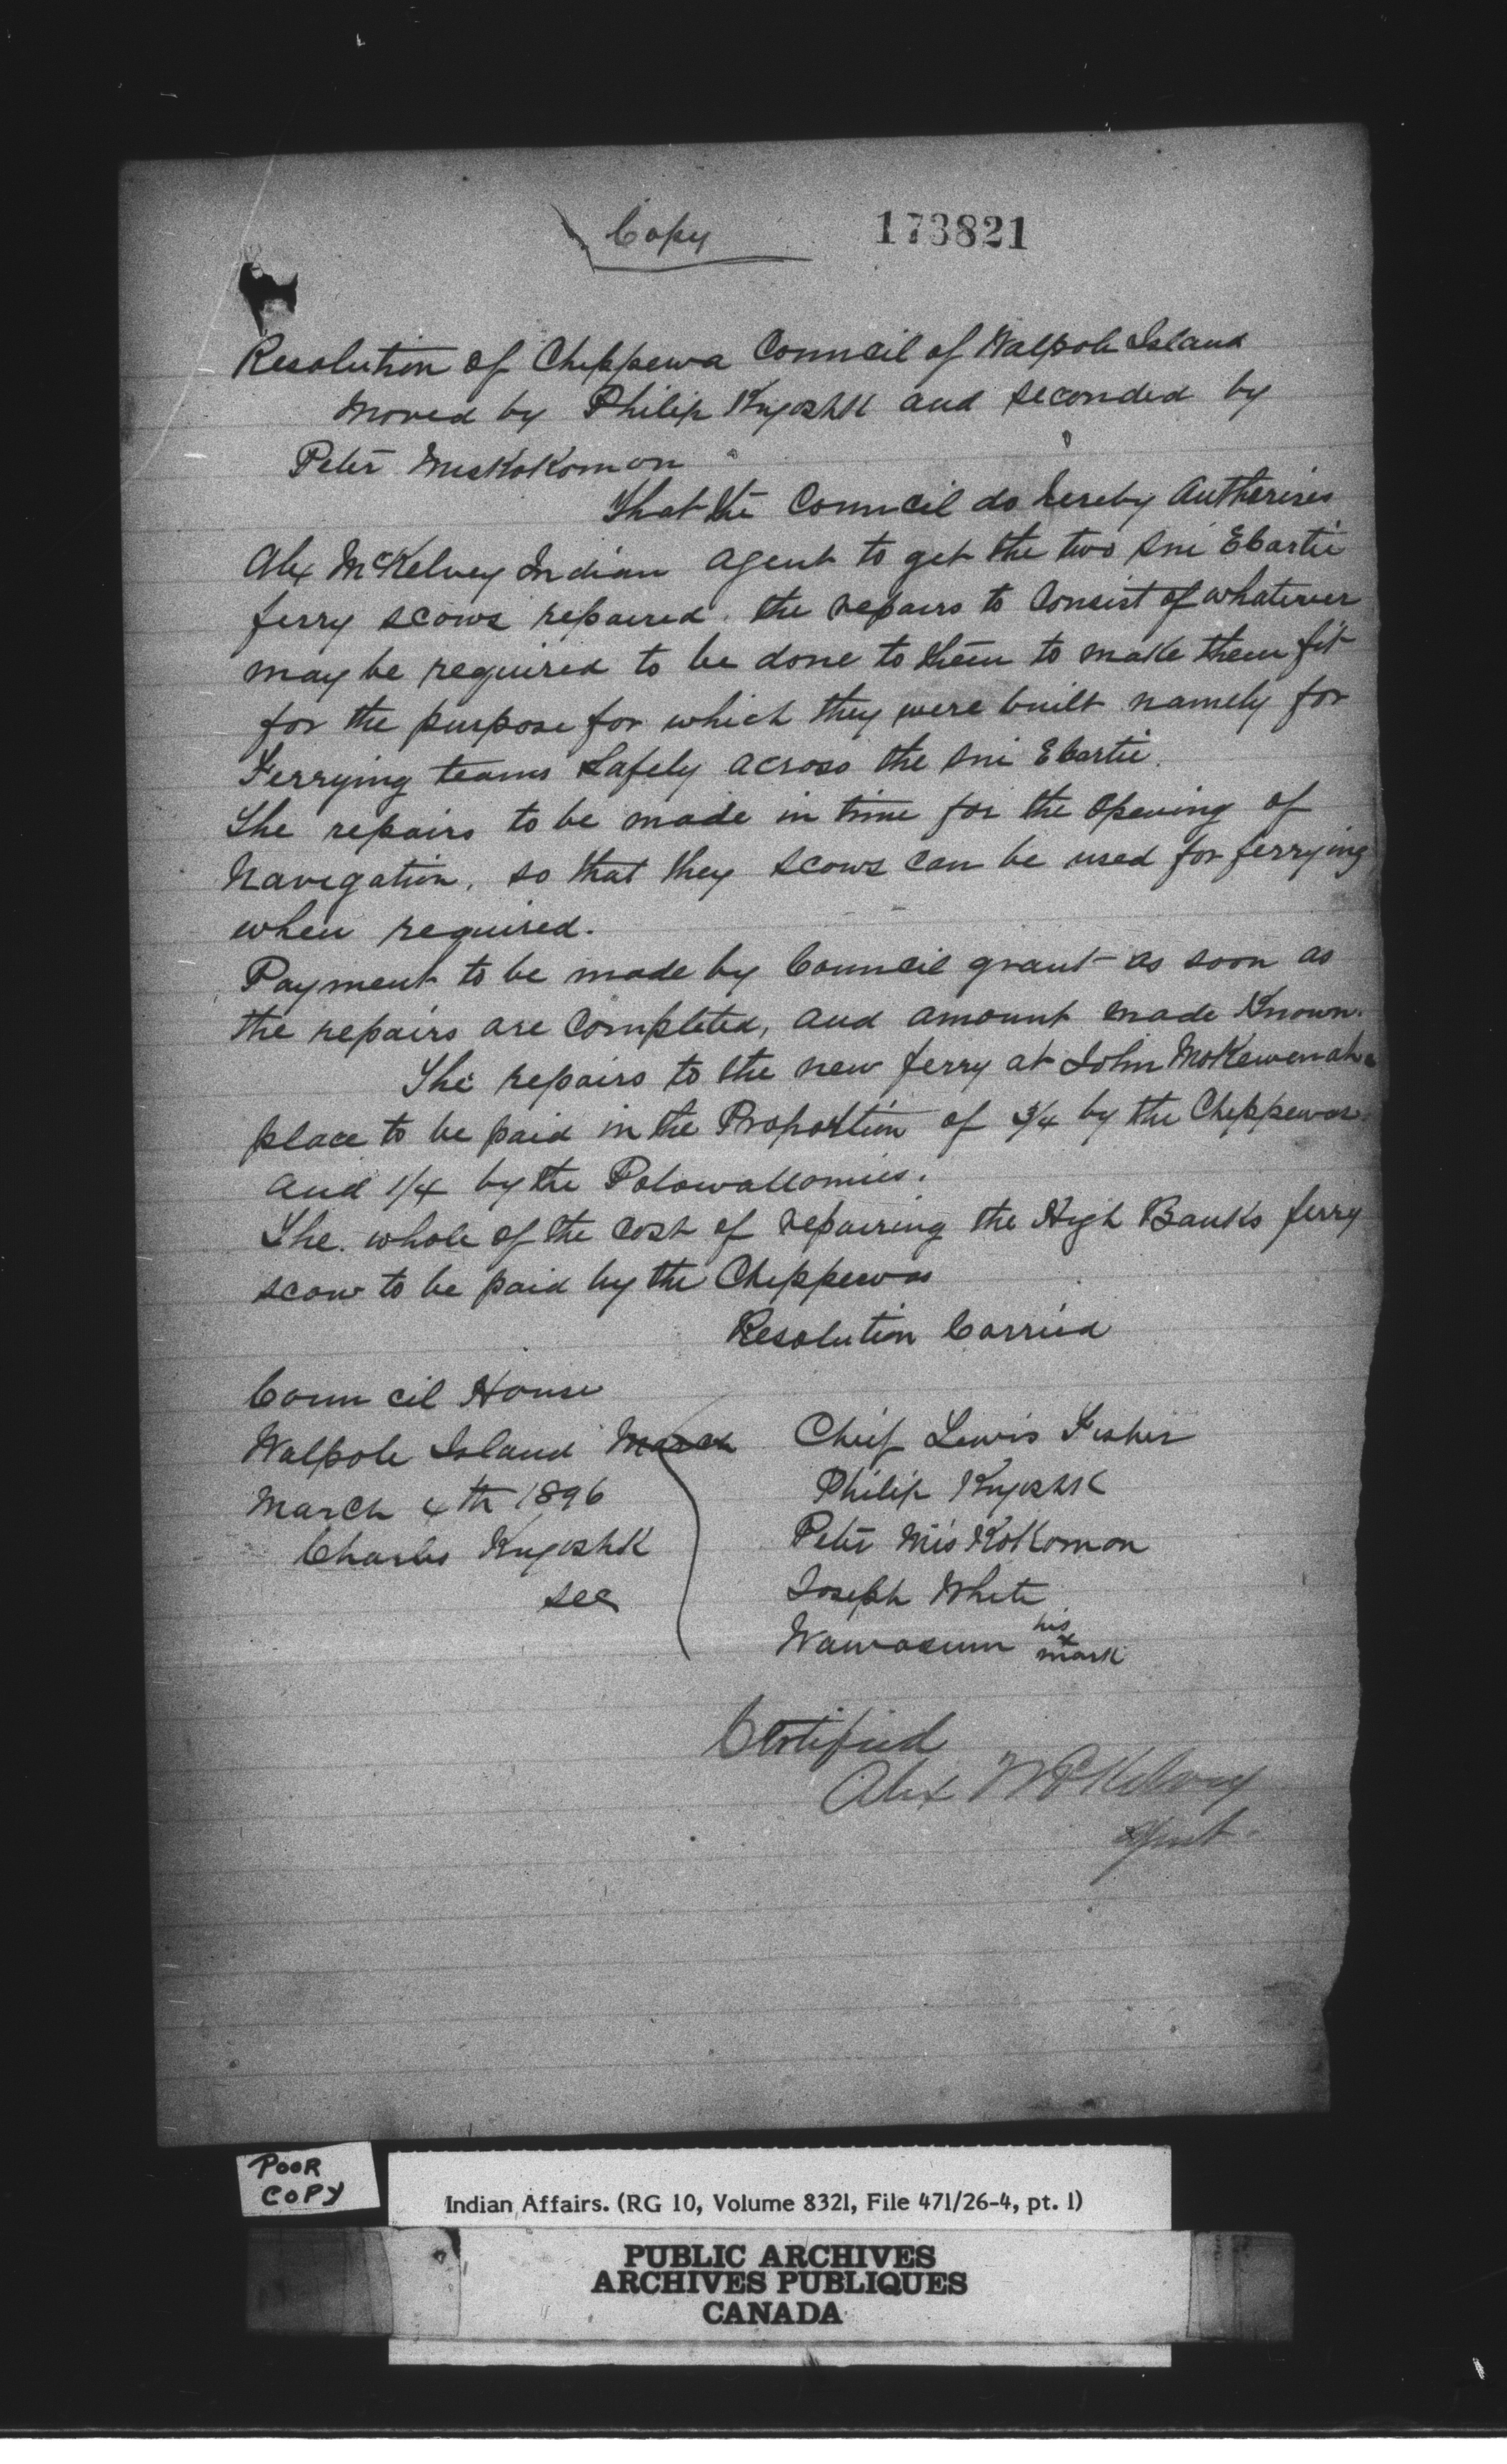 Copy
173821
Resolution of Chippewa Council of Walpole Island
Moved by Philip Kiyoshk and seconded by
Peter Miskokomon
That the Council do hereby Authorises
Alex McKelvey Indian Agent to get the two Sni Ebartie
ferry scows repaired. the repairs to consist of whatever
may be required to be done to them to make them fit
for the purpose for which they were built namely for
Ferrying teams Safely across the Sni Ebartie.
The repairs to be made in time for the Opening of
Navigation, so that they scows can be used for ferrying
when required.
Payment to be made by Council grant as soon as
the repairs are Completed, and amount made Known.
The repairs to the new ferry at John
place to be paid in the Proportion of 3/4 by the Chippewas
and 1/4 by the Potowattomies.
The whole of the cost of repairing the High Banks ferry
scow to be paid by the Chippewas
Resolution Carried
Council House
Walpole Island March
March 4th 1896
Charles Kiyoshk
Sec
Chief Lewis Fisher
Philip Kiyoshk
Peter Miskokomon
Joseph White
Wawasum his x mark
Certified
Alex McKelvey
Agent
POOR
COPY
Indian Affairs. (RG 10, Volume 8321, File 471/26-4, pt. 1)
PUBLIC ARCHIVES
ARCHIVES PUBLIQUES
CANADA